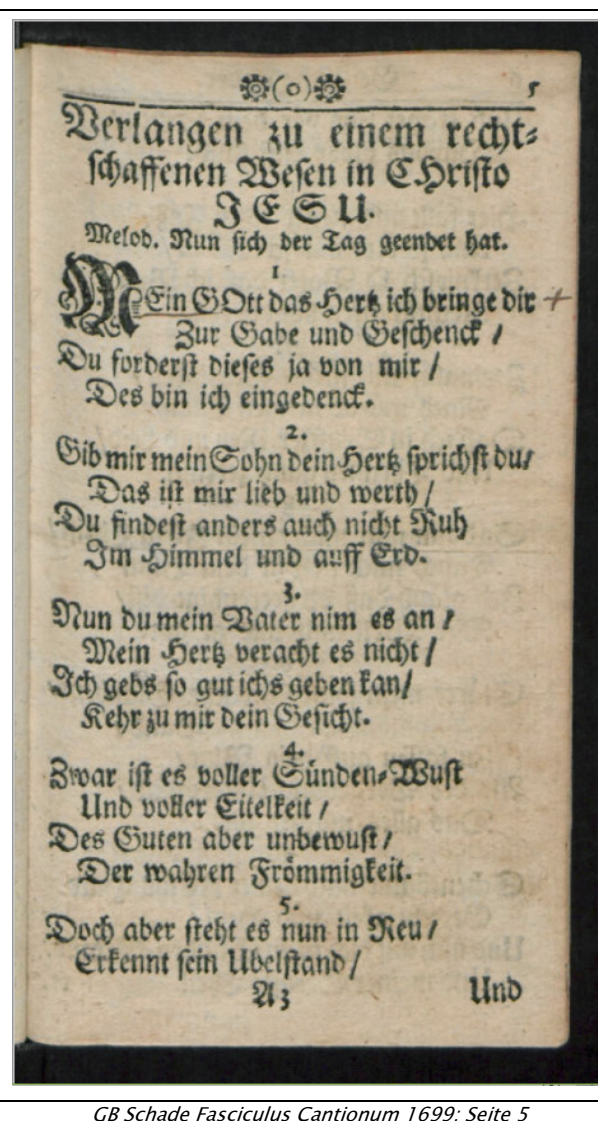 ❁(o)❁ 5
Verlangen zu einem recht⸗
schaffenen Wesen in CHristo
JESU.
Melod. Nun sich der Tag geendet hat.
1
MEin GOtt das Hertz ich bringe dir +
Zur Gabe und Geschenck /
Du forderst dieses ja von mir /
Des bin ich eingedenck.
2.
Gib mir mein Sohn dein Hertz sprichst du/
Das ist mir lieb und werth /
Du findest anders auch nicht Ruh
Im Himmel und auff Erd.
3.
Nun du mein Vater nim es an /
Mein Hertz veracht es nicht /
Ich gebs so gut ichs geben kan/
Kehr zu mir dein Gesicht.
4.
Zwar ist es voller Sünden⸗Wust
Und voller Eitelkeit /
Des Guten aber unbewust /
Der wahren Frömmigkeit.
5.
Doch aber steht es nun in Reu /
Erkennt sein Ubelstand /
A3 Und
GB Schade Fasciculus Cantionum 1699: Seite 5